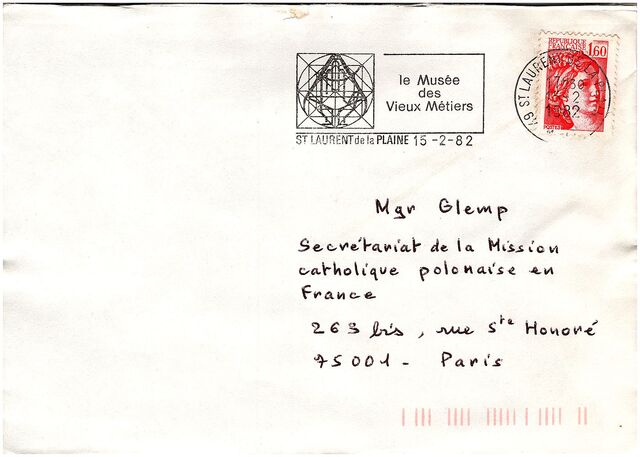 le Musée
des
Vieux Métiers
ST LAURENT de la PLAINE 15-2-82
REPUBLIQUE
FRANCAISE
1,60
POSTES
49 ST LAURENT DE LA
15-2
1982
Mgr Glemp
Secrétariat de la Mission
catholique polonaise en
France
263 bis, rue Ste Honoré
75001 - Paris